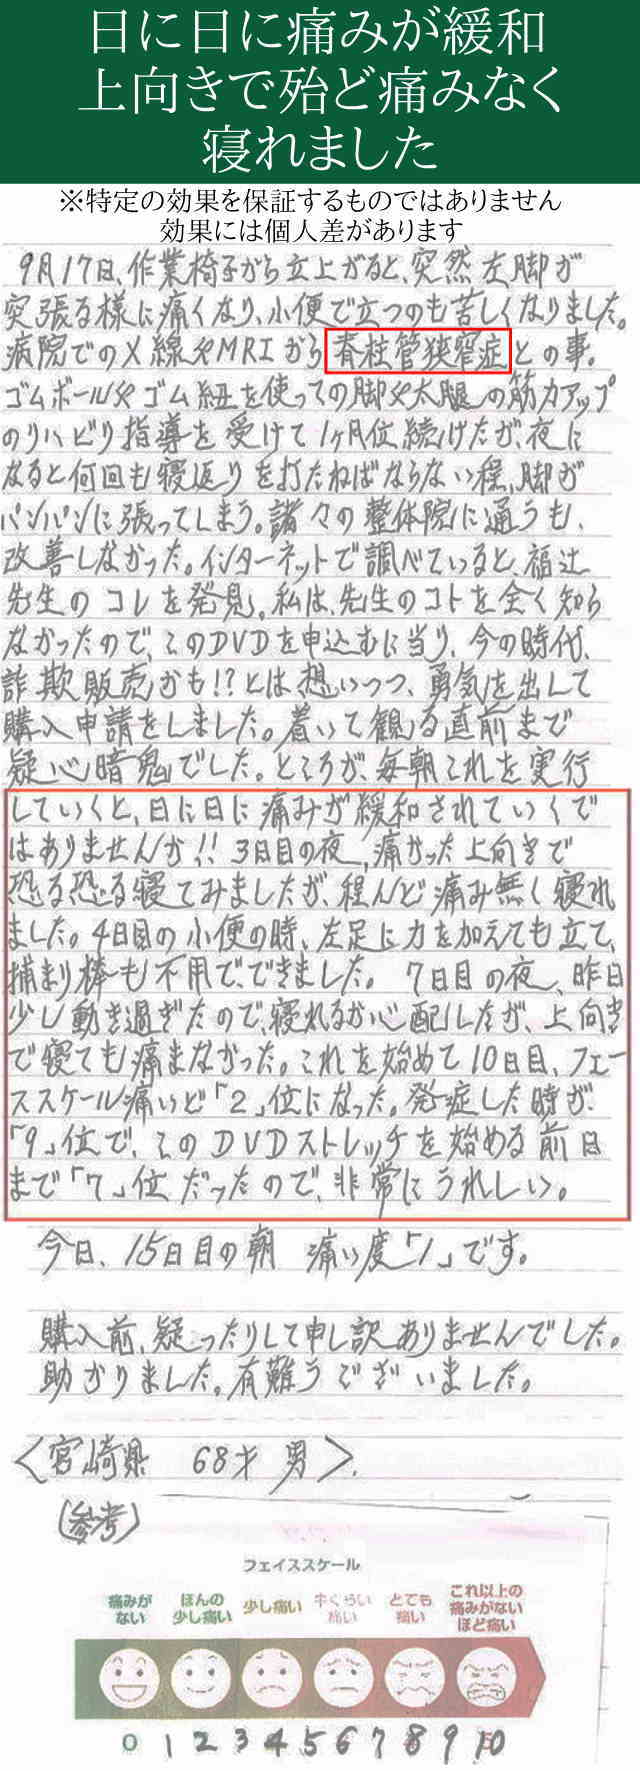 日に日に痛みが緩和
上向きで殆ど痛みなく
寝れました
※特定の効果を保証するものではありません
効果には個人差があります
9月17日、作業椅子から立上がると、突然左脚が
突張る様に痛くなり、小便で立つのも苦しくなりました。
病院でのX線やMRIから脊柱管狭窄症との事。
ゴムボールやゴム紐を使っての脚や大腿の筋力アップ
のリハビリ指導を受けて1ヶ月位続けたが、夜に
なると何回も寝返りを打たねばならない程、脚が
パンパンに張ってしまう。諸々の整体院に通うも、
改善しなかった。インターネットで調べていると、福辻
先生のコレを発見。私は、先生のコトを全く知ら
なかったので、このDVDを申込むに当り、今の時代、
詐欺販売かも!?とは想いつつ、勇気を出して
購入申請をしました。着いて観る直前まで
疑心暗鬼でした。ところが、毎朝これを実行
していくと、日に日に痛みが緩和されていくで
はありませんか!! 3日目の夜、痛かった上向きで
恐る恐る寝てみましたが、程んど痛み無く寝れ
ました。4日目の小便の時、左足に力を加えても立て、
捕まり棒も不用で、できました。7日目の夜、昨日
少し動き過ぎたので、寝れるか心配したが、上向き
で寝ても痛まなかった。これを始めて10日目、フェー
ススケール痛いど「2」位になった。発症した時が、
「9」位で、このDVDストレッチを始める前日
まで「7」位だったので、非常にうれしい。
今日、15日目の朝 痛い度「1」です。
購入前、疑ったりして申し訳ありませんでした。
助かりました。有難うございました。
<宮崎県 68才 男>.
(参考)
フェイススケール
痛みがない ほんの少し痛い 少し痛い 中くらい痛い とても痛い これ以上の痛みがないほど痛い
0 1 2 3 4 5 6 7 8 9 10